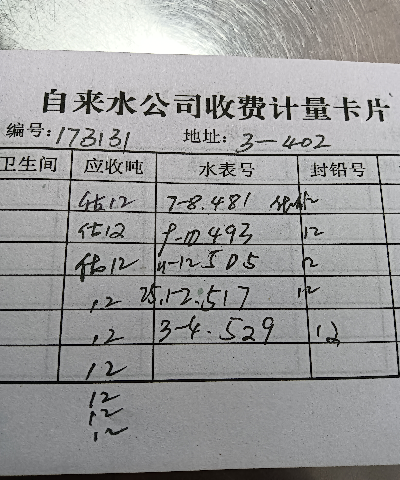 自来水公司收费计量卡片
编号:173131 地址:3-402
卫生间 应收吨 水表号 封铅号
估12 7-8.481 12
估12 9-10 493 12
估12 11-12 505 12
12 25.1-2.517 12
12 3-4.529 12
12
12
12
12